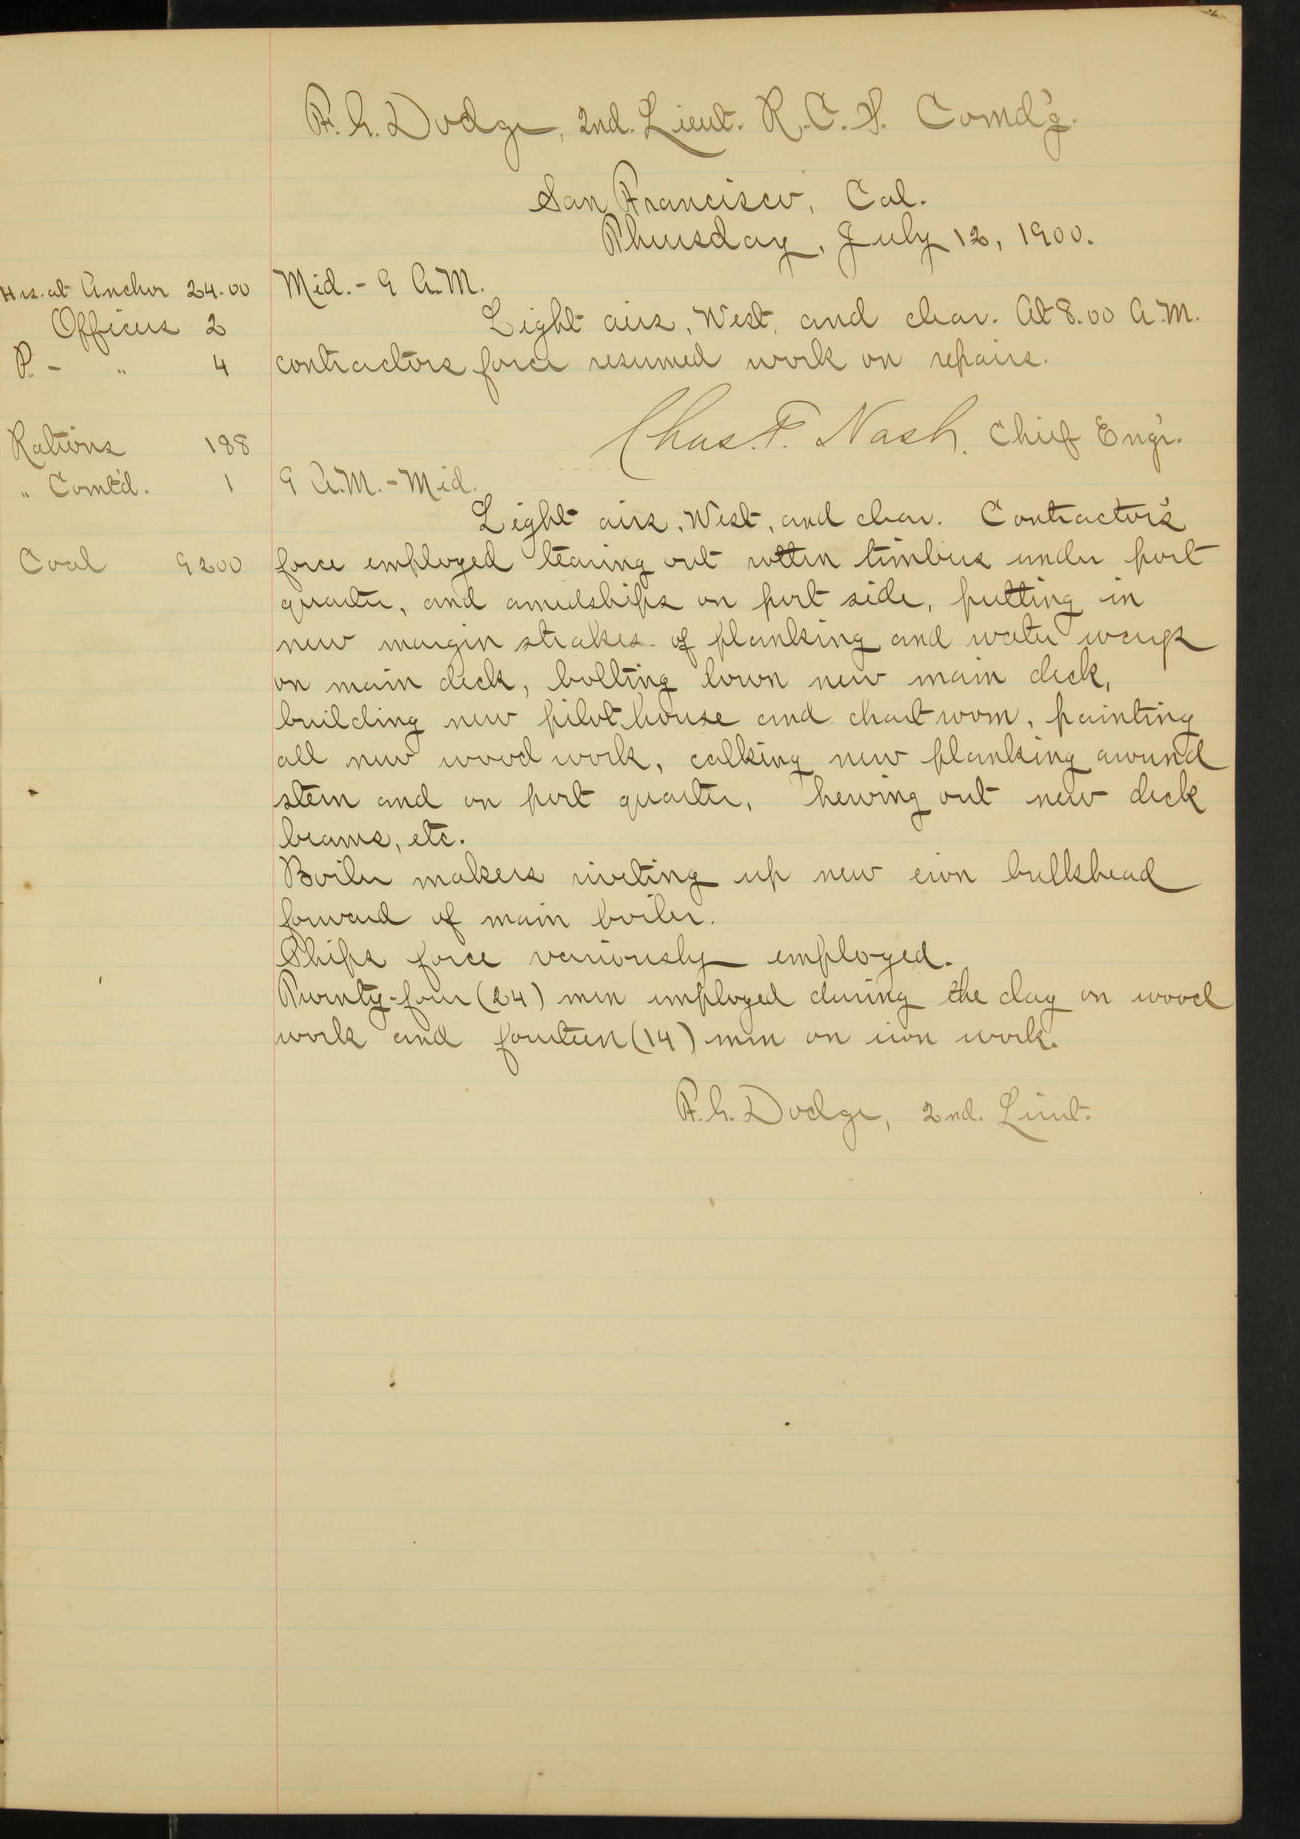 F. G. Dodge, 2nd. Lieut. R. C. S. Comd'g.
San Francisco, Cal.
Thursday, July 12, 1900.
Hrs. at Anchor 24.00
Officers 2
P. - " 4
Rations 188
" Comt'd. 1
Coal 9200
Mid. - 9 A.M.
Light airs, West, and clear. At 8.00 A.M.
contractors force resumed work on repairs.
Chas. F. Nash. Chief Eng'r.
9 A.M. - Mid.
Light airs, West, and clear. Contractor's
force employed tearing out rotten timbers under port
quarter, and amidships on port side, putting in
new margin strakes of planking and water ways
on main deck, bolting down new main deck,
building new pilot house and chart room, painting
all new wood work, calking new planking around
stem and on port quarter, hewing out new deck
beams, etc.
Boiler makers riviting up new iron bulkhead
forward of main boiler.
Ships force variously employed.
Twenty-four (24) men employed during the day on wood
work and fourteen (14) men on iron work.
F. G. Dodge, 2nd. Lieut.